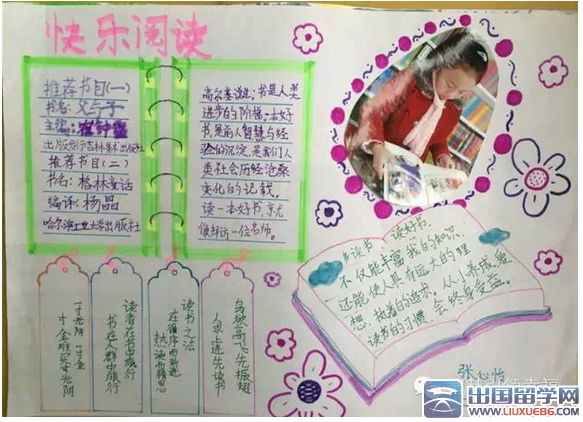 快乐阅读
推荐书目(一)
书名:父与子
主编:崔钟雷
出版发行吉林美术出版社
推荐书目(二)
书名:格林童话
编译:杨晶
哈尔滨工业大学出版社
高尔基说过:书是人类
进步的阶梯。一本好
书,是前人智慧与经
验的沉淀,是我们人
类社会历经沧桑
变化的记载。
读一本好书,就尤
像拜访一位名师。
多读书、读好书,
不仅能丰富我的知识,
还能使人具有远大的理
想、执着的追求。从小养成爱
读书的习惯,会终身受益。
一寸光阴一寸金
寸金难买寸光阴
读者在书中旅行
书在人群中旅行
读书之法
在循序而渐进
熟读而精思
鸟欲高飞先振翅
人求上进先读书
张心怡
出国留学网
www.liuxue86.com